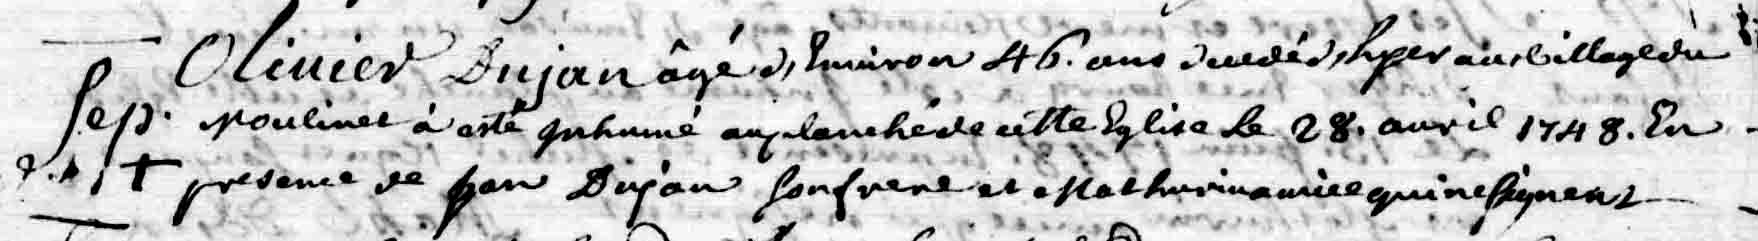 Olivier Dujan âgé d'Environ 46. ans decedé hyer au village du
Sep. Moulinet à esté Inhumé au planché de cette Eglise le 28. avril 1748. En
† presence de Jan Dujan son frere et Mathurin qui ne signent